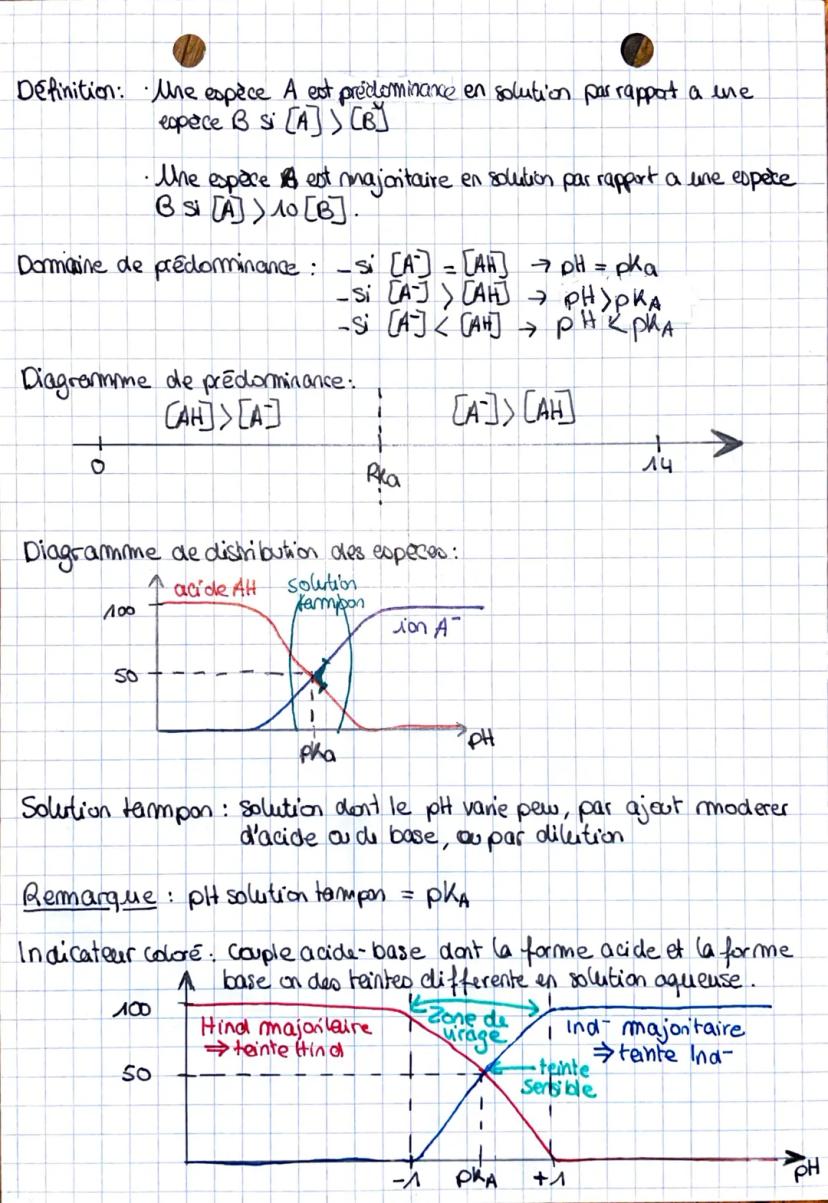 Définition: · Une espèce A est prédominance en solution par rapport a une
espèce B si [A] > [B]
· Une espèce A est majoritaire en solution par rapport a une espèce
B si [A] > 10 [B].
Domaine de prédominance : - si [A⁻] = [AH] → pH = pKa
- si [A⁻] > [AH] → pH > pKA
- si [A⁻] < [AH] → pH < pKA
Diagramme de prédominance:
[AH] > [A⁻] [A⁻] > [AH]
0 PKa 14
Diagramme de distribution des espèces :
acide AH solution
tampon
100 ion A⁻
50
pKa pH
Solution tampon : solution dont le pH varie peu, par ajout moderer
d'acide ou de base, ou par dilution
Remarque : pH solution tampon = pKA
Indicateur coloré : couple acide-base dont la forme acide et la forme
base on des teintes differente en solution aqueuse.
100
Hind majoritaire Zone de Ind⁻ majoritaire
⇒ teinte Hind virage ⇒ teinte Ind⁻
50 teinte
sensible
-1 pKA +1 pH